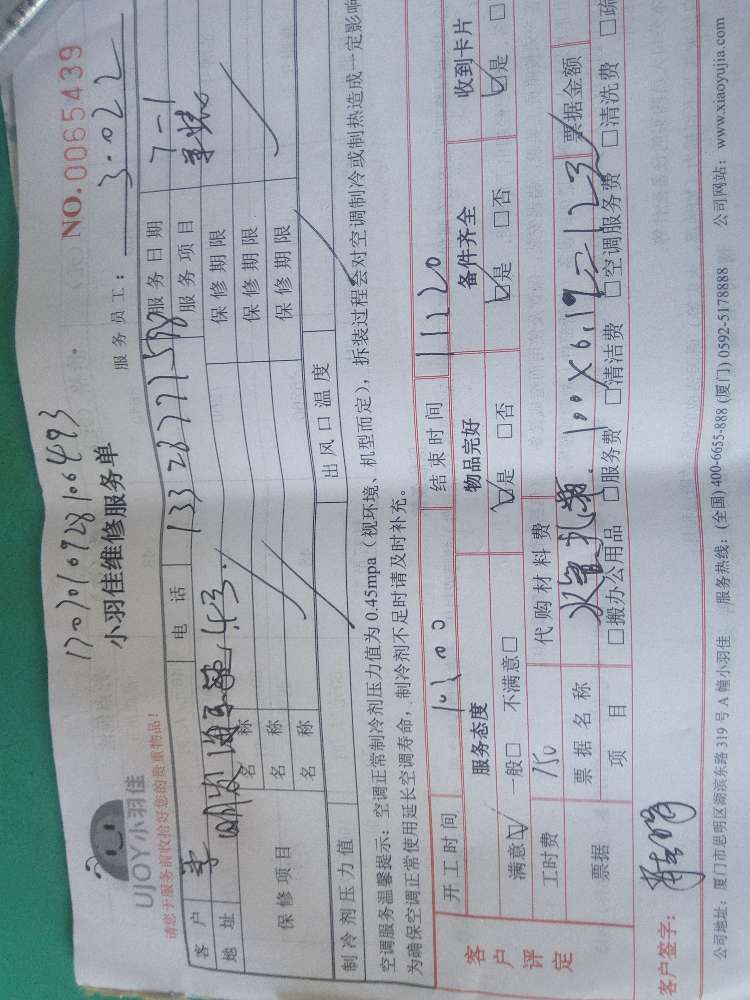 1707010928106493
NO.0065439
UJOY小羽佳
小羽佳维修服务单
请您于服务前收拾好您的贵重物品!
服务员工: 3.022
客户 李 电话 13328777598 服务日期 7-1
地址 服务项目
保修项目 名称 保修期限
名称 保修期限
名称 保修期限
制冷剂压力值 出风口温度
空调服务温馨提示: 空调正常制冷剂压力值为0.45mpa(视环境、机型而定), 拆装过程会对空调制冷或制热造成一定影响
为确保空调正常使用延长空调寿命, 制冷剂不足时请及时补充。
开工时间 10:00 结束时间 11:20
客户评定 服务态度 物品完好 备件齐全 收到卡片
满意☑ 一般□ 不满意□ ☑是 □否 ☑是 □否 ☑是 □
工时费 150 代购材料费
票据 票据名称 100×6.19=1123 票据金额
项目 □搬办公用品 □服务费 □清洁费 □空调服务费 □清洗费 □疏
客户签字:
公司地址: 厦门市思明区湖滨东路319号A幢小羽佳 服务热线: (全国) 400-6655-888 (厦门) 0592-5178888 公司网站: www.xiaoyujia.com